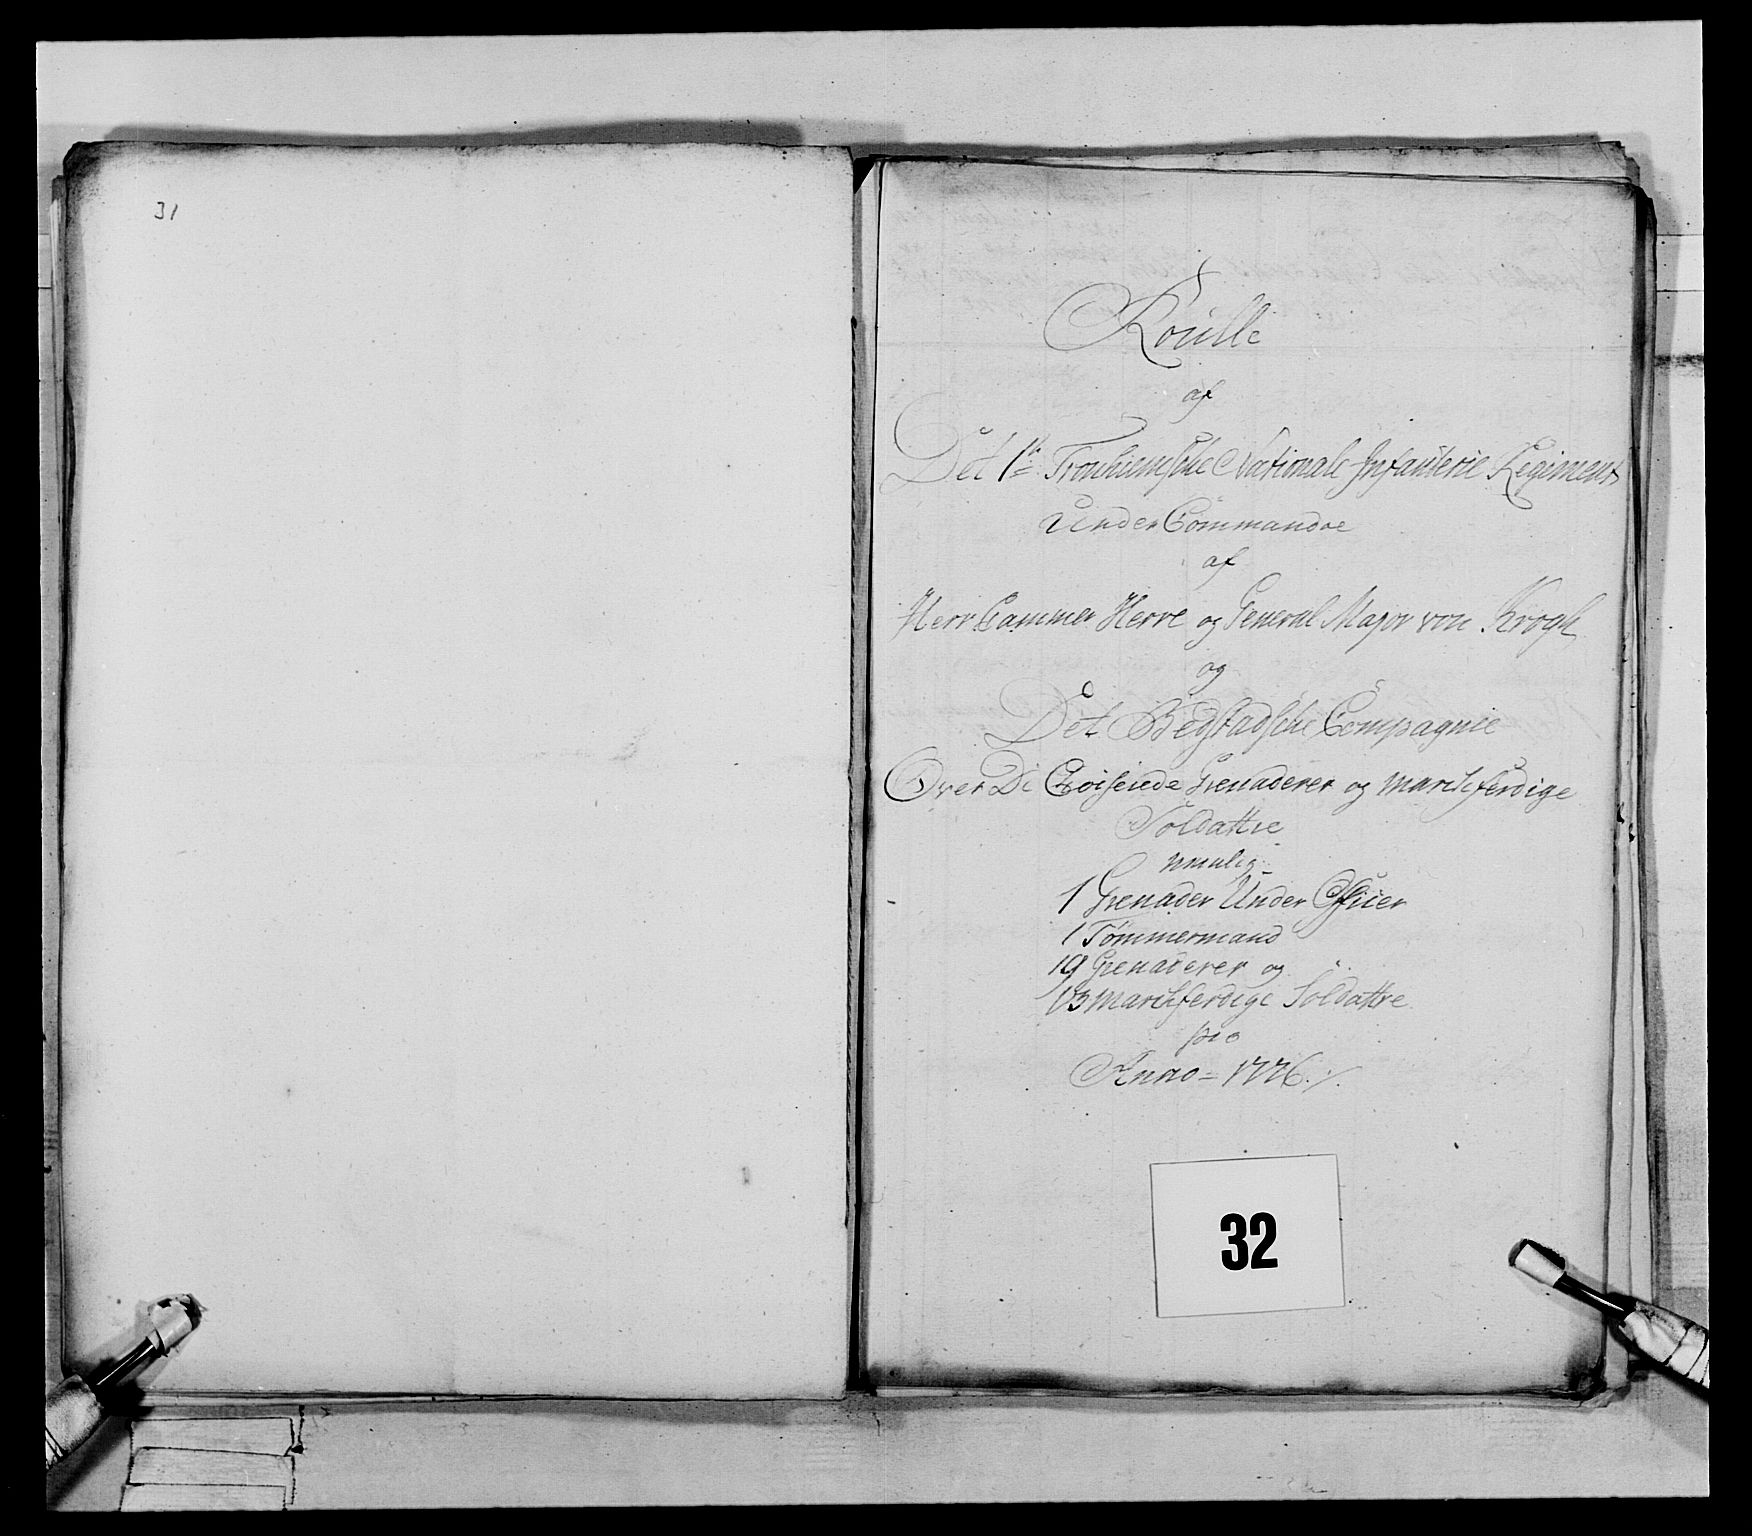 31
Roulle
af
Det 1te Tronhiemsche Nationale Infanterie Regiment
Under Commandoe
af
Herr Cammer Herre og General Major von Krogh
og
Det Bedstadsche Compagnie
Over De Exviserede Grenaderer og marchferdige
Soldattre
nemlig
1 Grenader Under Officier
1 Tømmermand
19 Grenaderer og
103 marchferdige Soldattre
pro
Anno = 1776 ./.
32